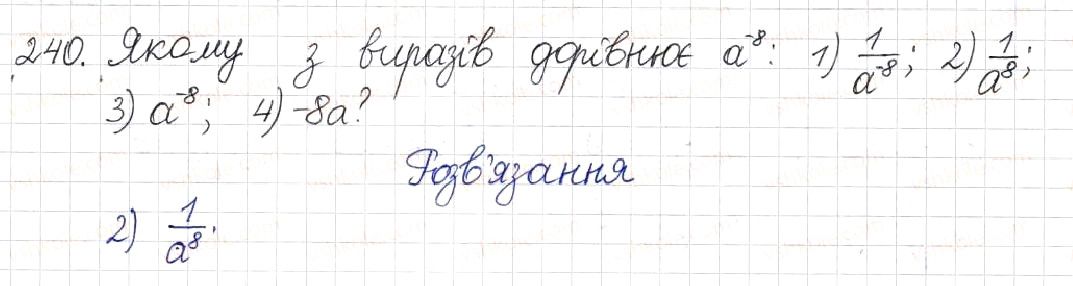 240. Якому з виразів дорівнює a⁻⁸: 1) 1/a⁻⁸; 2) 1/a⁸;
3) a⁻⁸; 4) -8a?
Розв'язання
2) 1/a⁸.